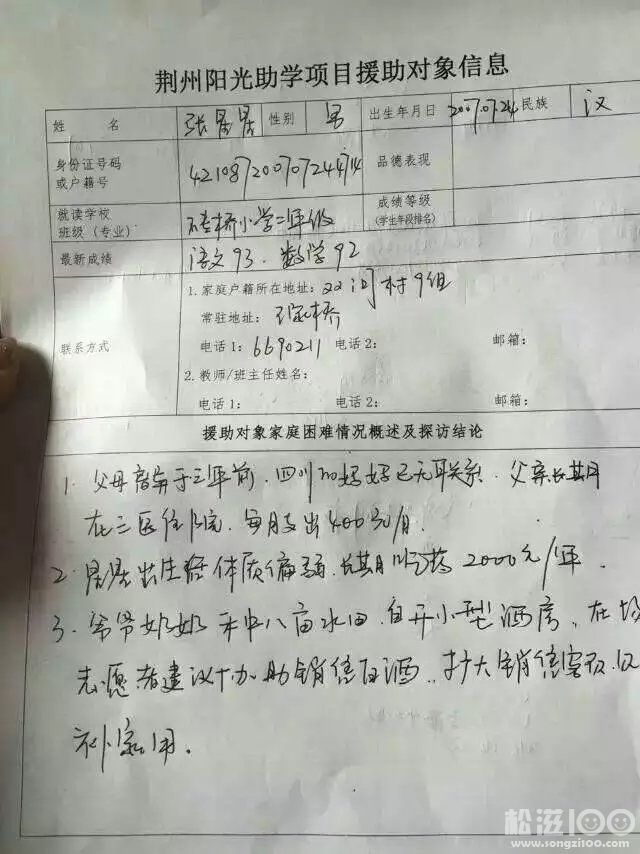 荆州阳光助学项目援助对象信息
姓 名 张晟晟 性别 男 出生年月日 20070724 民族 汉
身份证号码 或户籍号 421087200707244714 品德表现
就读学校 班级（专业） 桥小学二年级 成绩等级 (学生年段排名)
最新成绩 语文93. 数学92
联系方式
1.家庭户籍所在地址: 双河村9组
常驻地址: 桥
电话1: 6690211 电话2: 邮箱:
2.教师/班主任姓名:
电话1: 电话2: 邮箱:
援助对象家庭困难情况概述及探访结论
1. 父母离异于三年前. 四川的妈妈已无联系. 父亲长期
在三医住院. 每月支出400元/月.
2. 晟晟出生后体质偏弱. 长期吃药2000元/年.
3. 爷爷奶奶 种八亩水田. 自开小型酒房. 在场
志愿者建议协助销售白酒. 扩大销售 以
补家用.
松滋100
www.songzi100.com